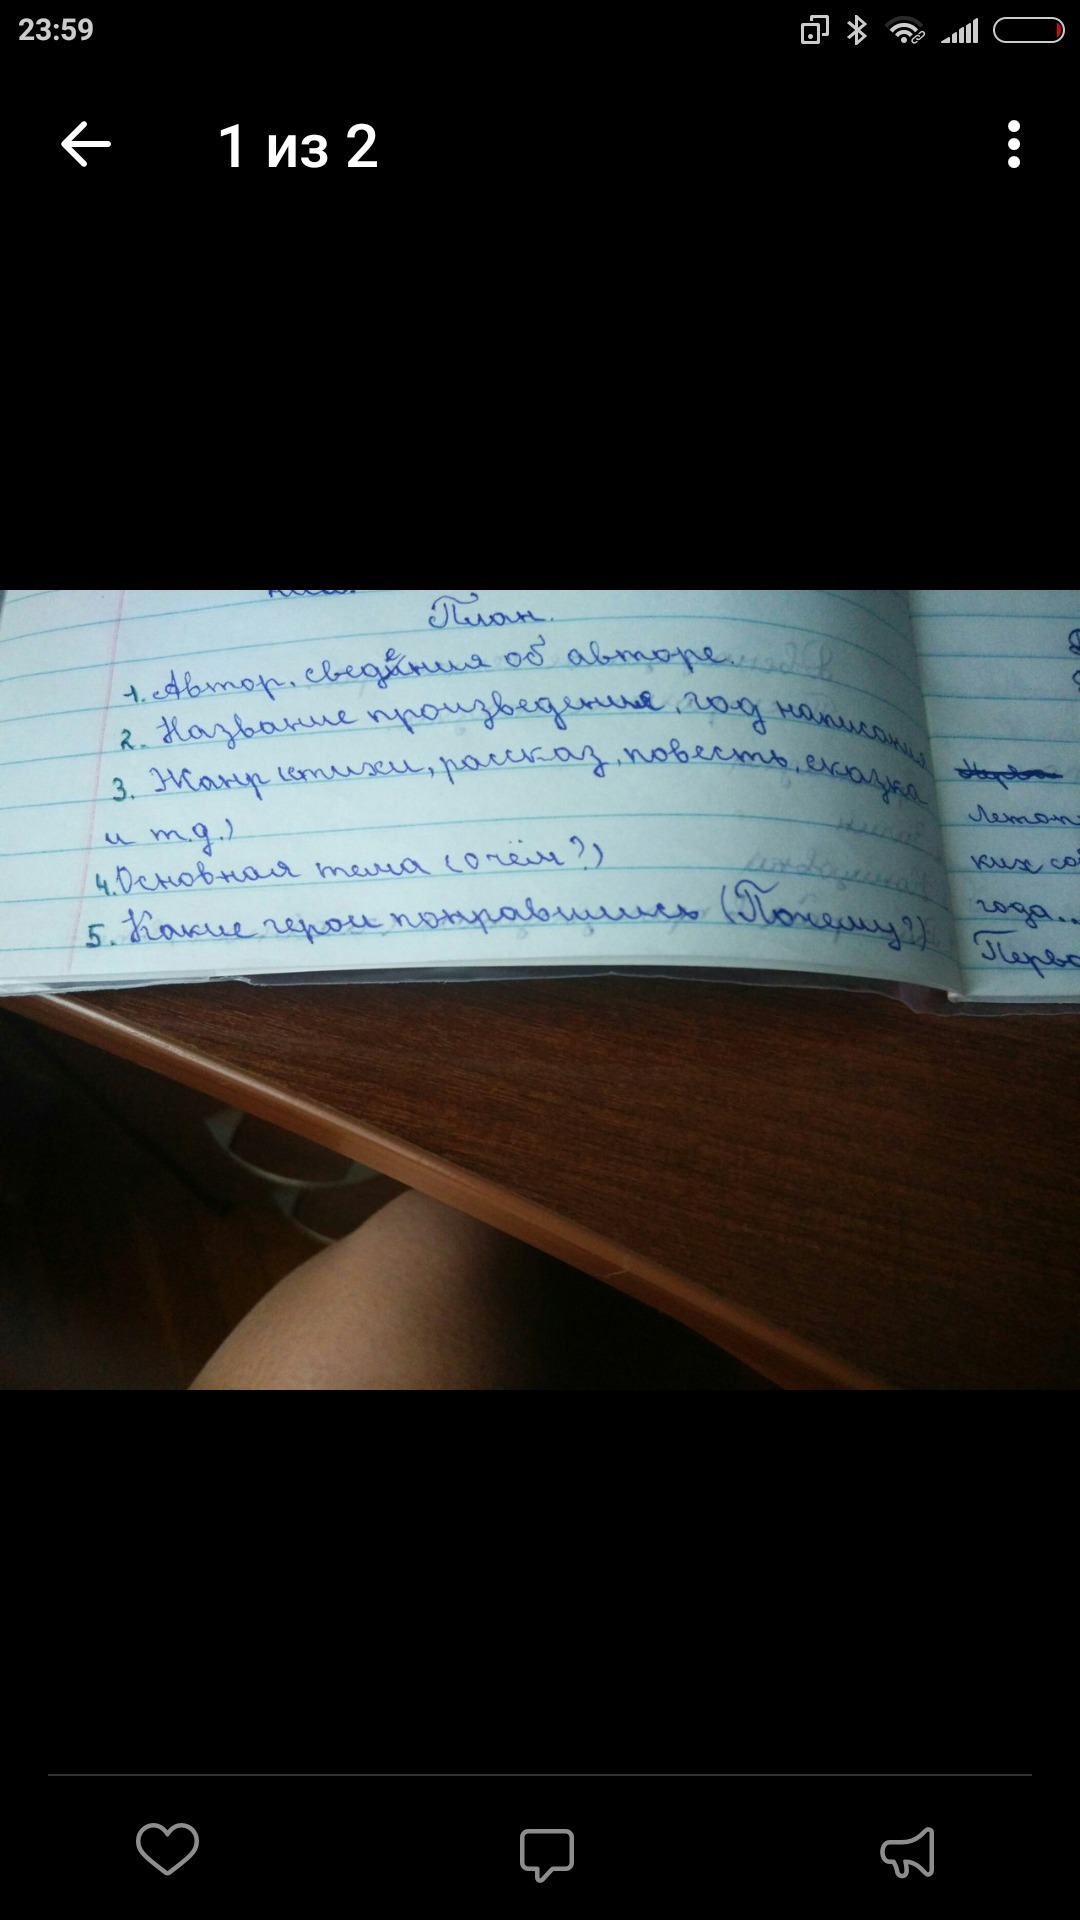 23:59
1 из 2
План.
1. Автор, сведения об авторе.
2. Название произведения, год написания
3. Жанр (стихи, рассказ, повесть, сказка
и т.д.)
4. Основная тема (о чём?)
5. Какие герои понравились (Почему?)
ких
года...